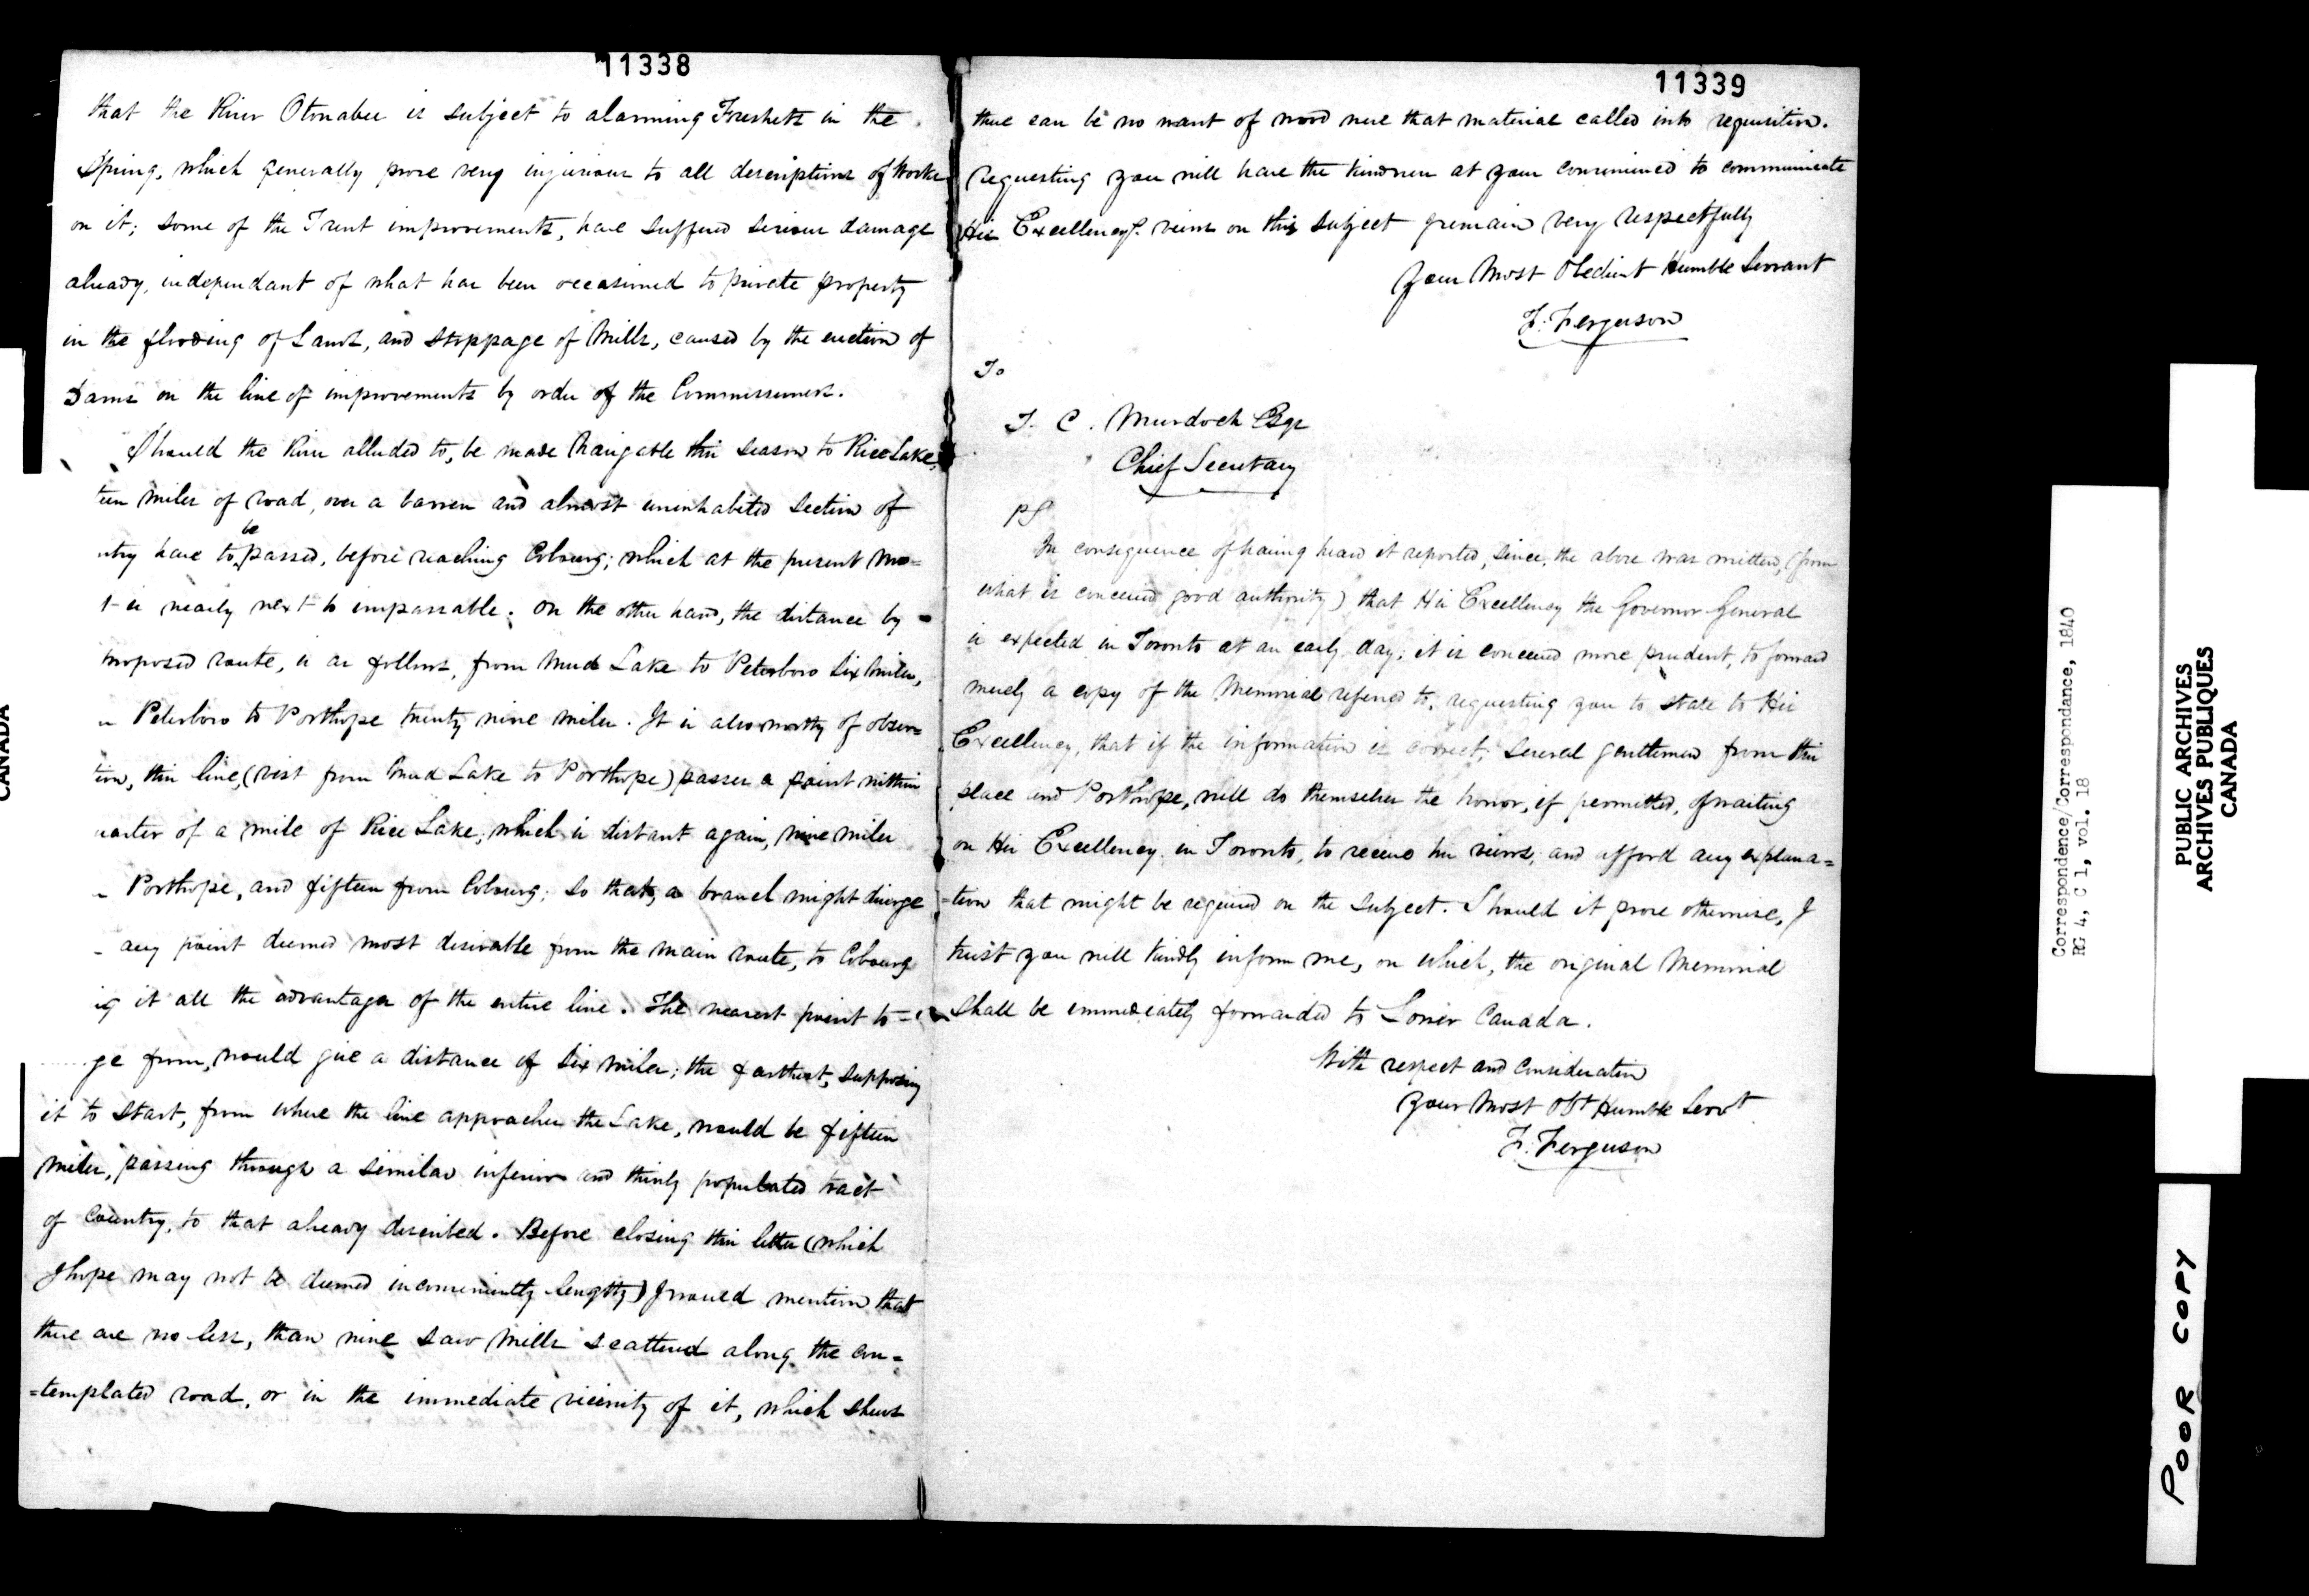 11338
that the River Otonabee is subject to alarming Freshets in the
Spring, which generally prove very injurious to all descriptions of Works
on it; some of the Trent improvements, have suffered serious damage
already, independant of what has been occasioned to private property
in the flooding of Lands, and stoppage of Mills, caused by the erection of
Dams on the line of improvements by order of the Commissioners.
Should the River alluded to, be made Navigable this season to Rice Lake,
teen miles of road, over a barren and almost uninhabited section of
be
ntry have to passed, before reaching Cobourg; which at the present mo=
t is nearly next to impassable. On the other hand, the distance by
proposed route, is as follows, from Mud Lake to Peterboro Six Miles,
Peterboro to Porthope twenty nine miles. It is also worthy of obser=
tion, this line, (vist from Mud Lake to Porthope) passes a point within
uarter of a mile of Rice Lake; which is distant again, nine miles
Porthope, and fifteen from Cobourg; so that, a branch might diverge
any point deemed most desirable from the main route, to Cobourg
ig it all the advantages of the entire line. The nearest point to =
ge from, would give a distance of Six miles; the farthest, supposing
it to start, from where the line approaches the Lake, would be fifteen
miles, passing through a similar inferior and thinly populated tract
of Country, to that already described. Before closing this letter (which
I hope may not be deemed inconveniently lengthy) I would mention that
there are no less, than nine Saw Mills scattered along the con=
=templated road, or in the immediate vicinity of it, which shews
11339
there can be no want of wood were that material called into requisition.
Requesting you will have the kindness at your convenience to communicate
His Excellency's views on this subject I remain very respectfully
Your Most Obedient Humble Servant
F. Ferguson
To
T. C. Murdoch Esqr
Chief Secretary
PS
In consequence of having heard it reported, since, the above was written, (from
what is conceived good authority) that His Excellency the Governor General
is expected in Toronto at an early day; it is conceived more prudent, to forward
merely a copy of the Memorial referred to, requesting you to state to His
Excellency, that if the information is correct, several gentlemen from this
place and Porthope, will do themselves the honor, if permitted, of waiting
on His Excellency in Toronto, to receive his views, and afford any explana=
=tion that might be required on the subject. Should it prove otherwise, I
trust you will kindly inform me, on which, the original Memorial
shall be immediately forwarded to Lower Canada.
With respect and consideration
Your Most Obt Humble Servt
F. Ferguson
CANADA
Correspondence/Correspondance, 1840
RG 4, C 1, vol. 18
PUBLIC ARCHIVES
ARCHIVES PUBLIQUES
CANADA
POOR COPY